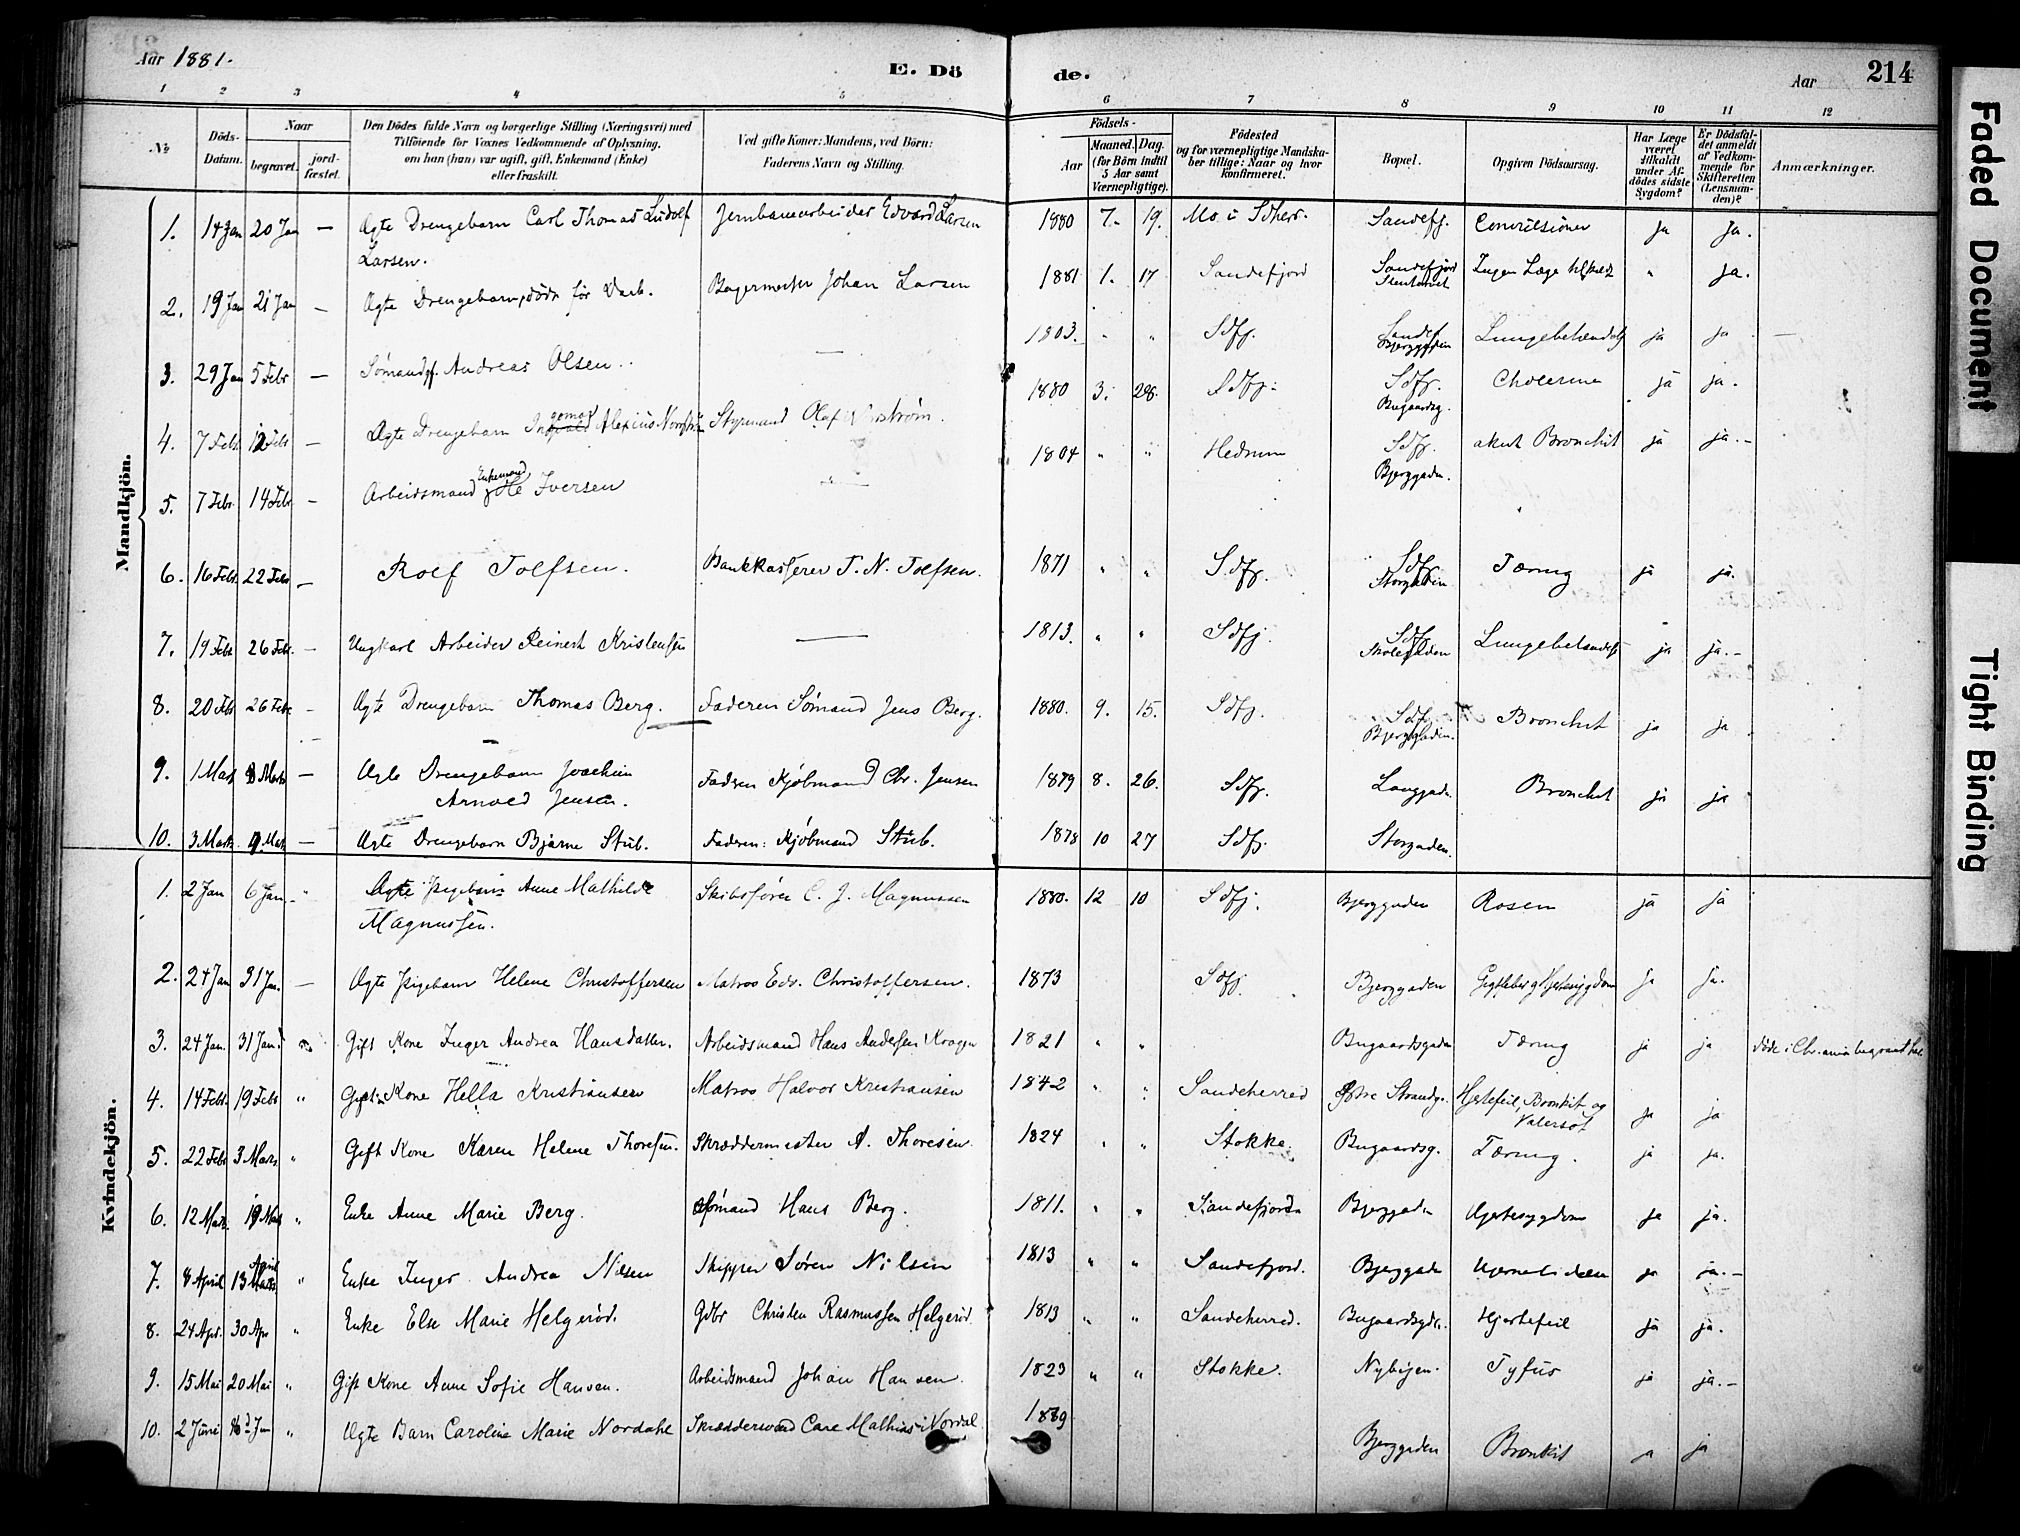 Aar 1881.
E. Dö
de.
Aar
214
1 2 3 4 5 6 7 8 9 10 11 12
No
Döds-Datum.
Naar
begravet.
jord-fæstet.
Den Dödes fulde Navn og borgerlige Stilling (Næringsvei) med
Tilföiende for Voxnes Vedkommende af Oplysning,
om han (hun) var ugift, gift, Enkemand (Enke)
eller fraskilt.
Ved gifte Koner: Mandens, ved Börn:
Faderens Navn og Stilling.
Födsels-
Aar
Maaned. Dag.
(for Börn indtil
5 Aar samt
Værnepligtige).
Födested
og for værnepligtige Mandska-
ber tillige: Naar og hvor
Konfirmeret.
Bopæl.
Opgiven Dödsaarsag.
Har Læge
været
tilkaldt
under Af-
dödes sidste
Sygdom?
Er Dödsfal-
det anmeldt
af Vedkom-
mende for
Skifteretten
(Lensman-
den)?
Anmærkninger.
Mandkjön.
1. 14 Jan 20 Jan — Ægte Drengebarn Carl Thomas Ludolf Larsen. Jernbanearbeider Edvard Larsen 1880 7. 19. Mo i Sdherr. Sandefj. Convulsioner ja ja.
2. 19 Jan 21 Jan — Ægte Drengebarn, døde før Daab. Bagermester Johan Larsen 1881 1. 17 Sandefjord Sandefjord Ingen Læge tilkaldt " ja.
3. 29 Jan 5 Febr — Sømand Andreas Olsen. — 1803. " " Sdfj. Sandef Bjerggaden Lungebetændels ja ja —
4. 7 Febr 12 Febr — Ægte Drengebarn Alexius Styrmand Olaf 1880 3. 28. Sdfj. Sdfj. Bugaardsg. Cholerine ja ja.
5. 7 Febr. 14 Febr — Arbeidsmand Enkemand Ole Iversen — 1804 " " Hedrum Sdfj. Bjerggaden. akut Bronchit ja ja.-
6. 16 Febr. 22 Febr — Rolf Tolfsen. Bankkasserer T. N. Tolfsen. 1871 " " Sdfj. Sdfj. Storgaden Tæring ja ja.
7. 19 Febr 26 Febr. — Ungkarl Arbeider Reinert Kristensen — 1813. " " Sdfj Sdfj. Skolegaden Lungebetændels ja ja.-
8. 20 Febr 26 Febr - Ægte Drengebarn Thomas Berg. Faderen Sømand Jens Berg. 1880. 9. 15. Sdfj. Sdfj Bjerggaden. Bronchit ja ja
9. 1 Marts 8 Marts — Ægte Drengebarn Joachim Arnold Jensen. Faderen Kjøbmand Chr. Jensen 1879 8. 26. Sdfj. Langgaden Bronchit ja ja
10. 3 Marts 9. Mar — Ægte Drengebarn Bjarne Stub. Faderen: Kjøbmand Stub. 1878 10 27 Sdfj. Storgaden.
Kvindekjön.
1. 2 Jan 6 Jan. " Ægte Pigebarn Anne Mathilde Magnussen. Skibsfører C. J. Magnussen 1880. 12 10 Sdfj. Bjerggaden Rosen ja ja
2. 24 Jan 31 Jan. — Ægte Pigebarn Helene Christoffersen Matros Edv. Christoffersen. 1873 Sdfj. Bjerggaden Gigtfeber og Hjertesygdom ja ja.
3. 24 Jan. 31 Jan. Gift Kone Inger Andrea Hansdatter. Arbeidsmand Hans Andersen 1821 " " Bugaardsgaden Tæring ja ja døde i Chr.ania
4. 14 Febr. 19 Febr " Gift Kone Hella Kristiansen Matros Halvor Kristiansen 1842 " " Sandeherred Østre Strandg. Hjertefeil, Bronkit og Vatersot ja ja
5. 22 Febr 3 Marts " Gift Kone Karen Helene Thoresen. Skræddermester A. Thoresen. 1824 " " Stokke. Bugaardsg. Tæring. ja ja.
6. 12 Marts. 19 " Enke Anne Marie Berg. Sømand Hans Berg. 1811. " " Sandefjord Bjerggaden Hjertesygdom ja ja.
7. 8 April 13 April " Enke Inger Andrea Nilsen Skipper Søren Nilsen 1813 " " Sandefjord. Bjerggade ja ja.-
8. 24 Apr. 30 Apr " Enke Else Marie Helgerød. Gdbr Christen Rasmussen Helgerød. 1813 " " Sandeherred. Bugaardsgdn. Hjertefeil ja ja.
9. 15 Mai 20 Mai " Gift Kone Anne Sofie Hansen. Arbeidsmand Johan Hansen. 1823 " " Stokke. Nybyen. Tyfus ja ja.-
10. 2 Juni Jun " Ægte Barn Caroline Marie Nordahl Skræddersvend Carl Mathias Nordal Bjerggaden Bronkit ja ja
Faded Document
Tight Binding